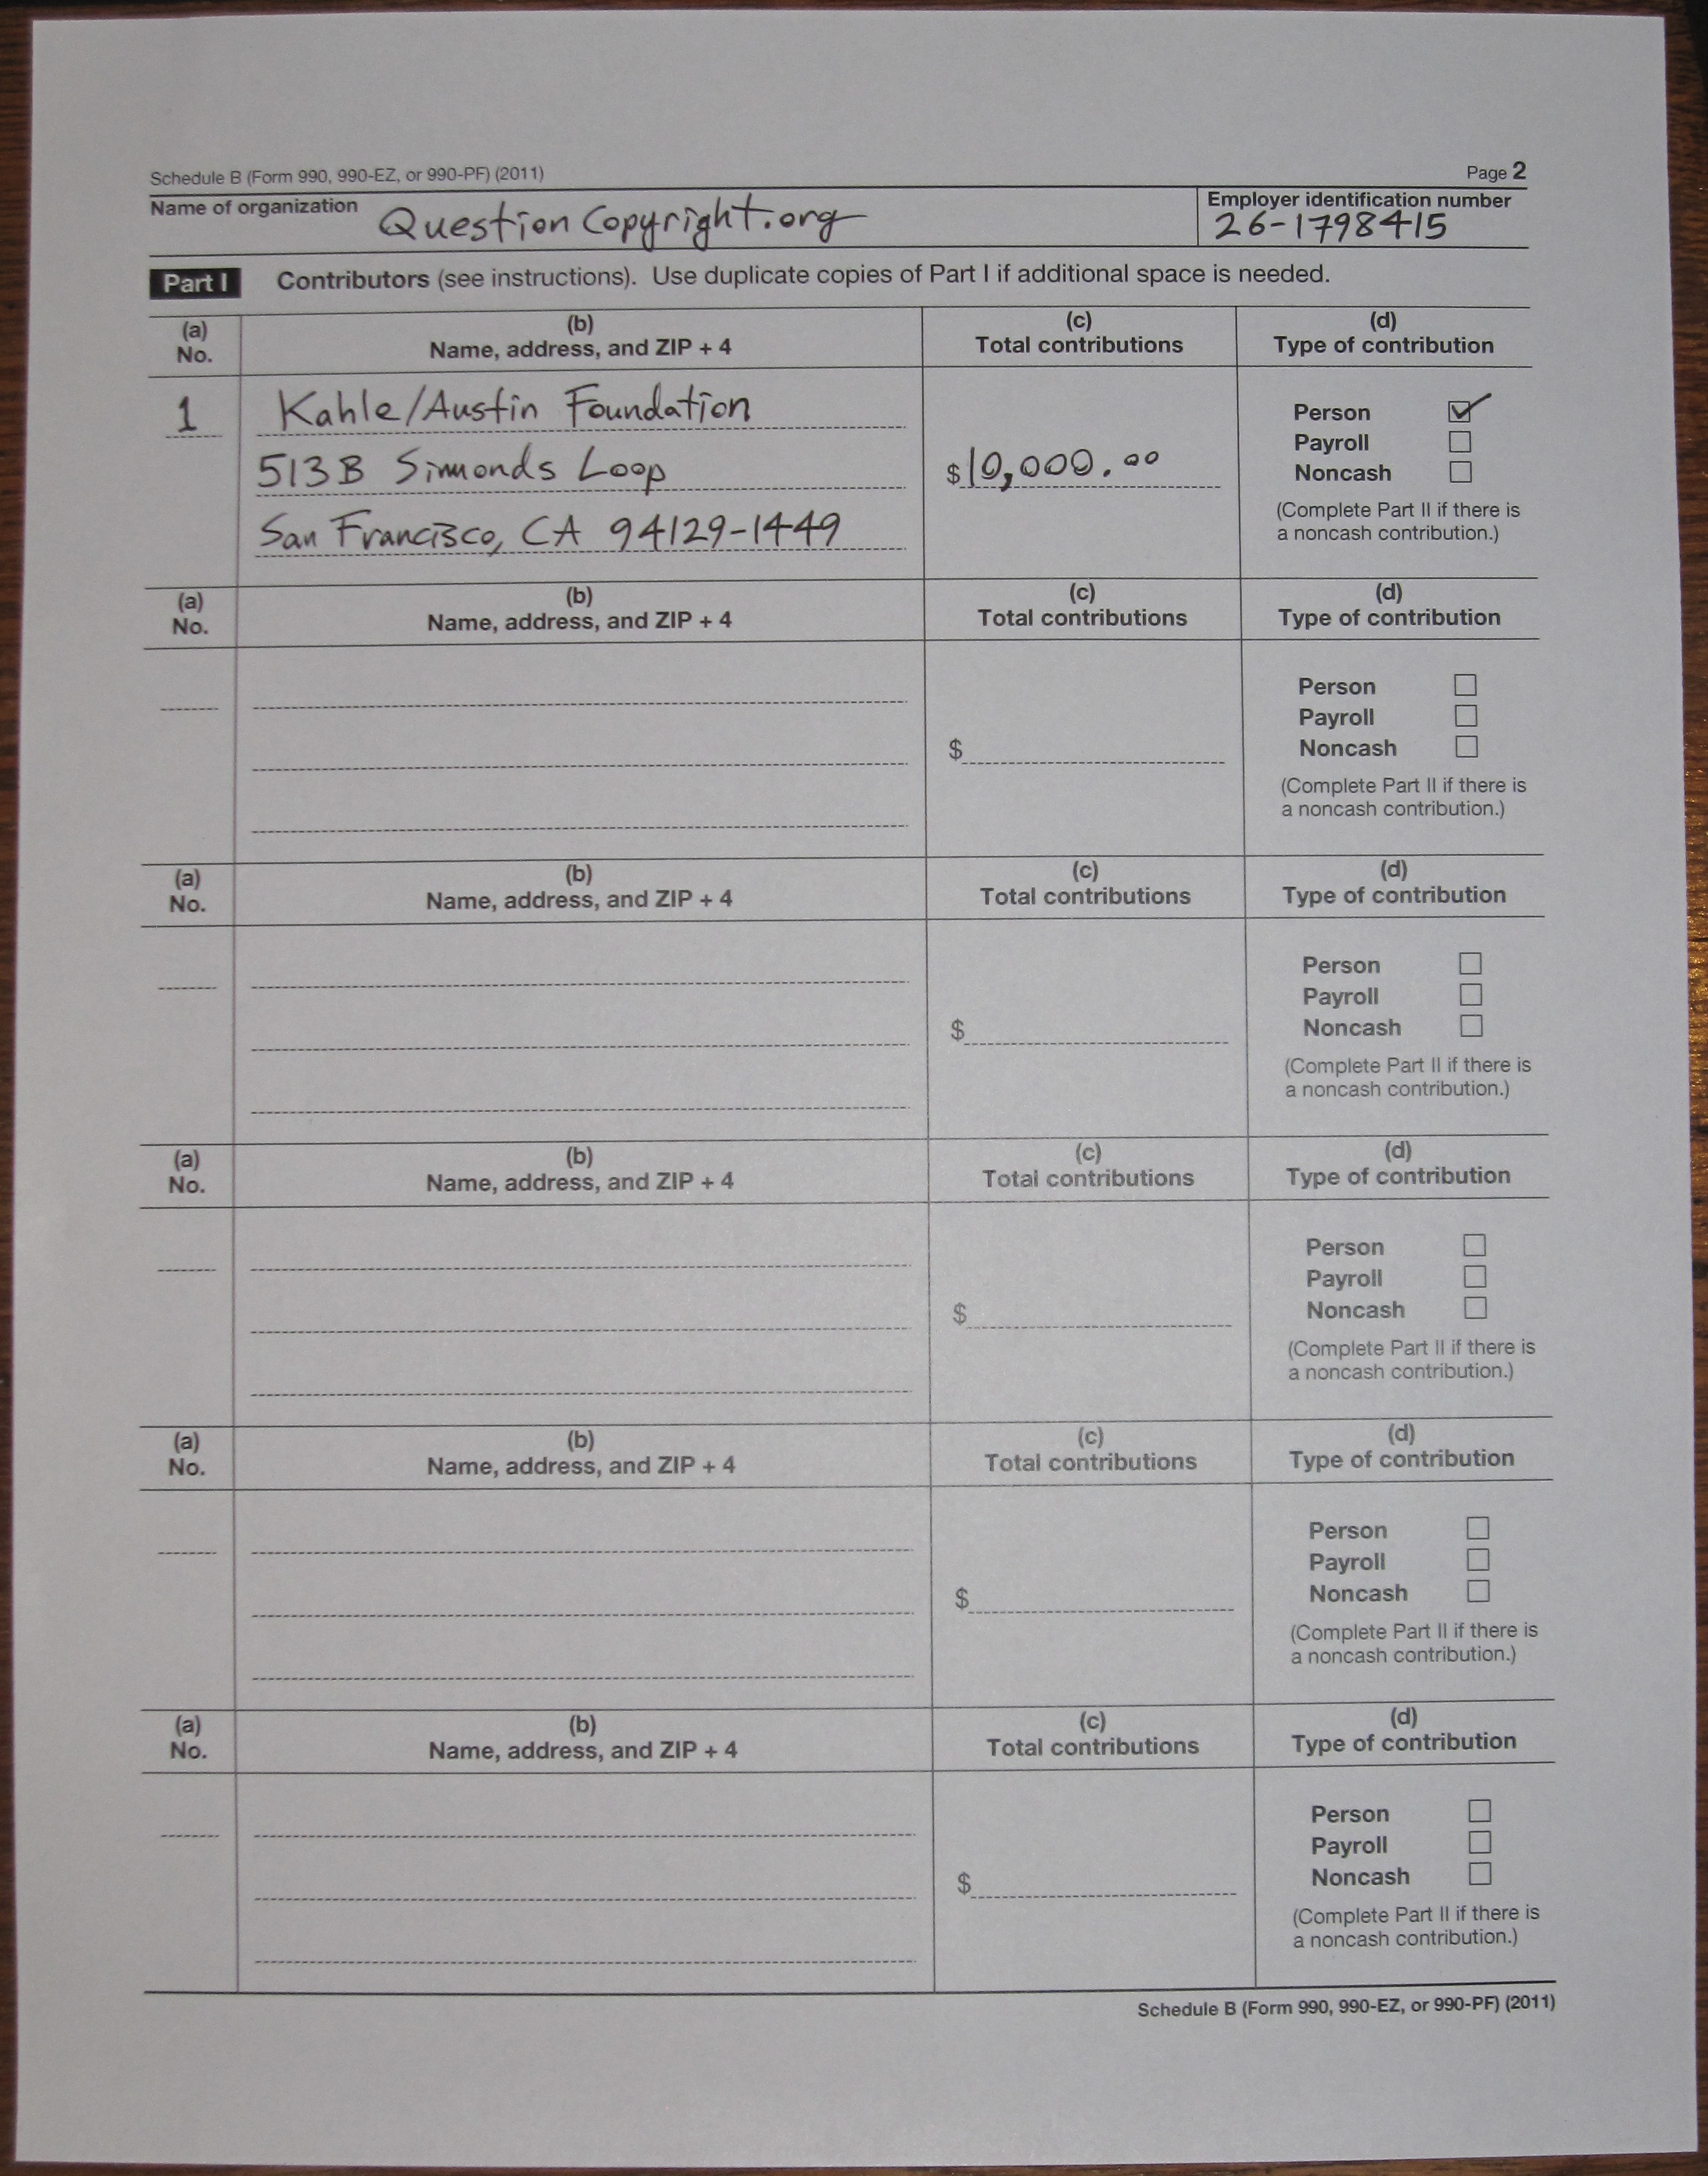 Schedule B (Form 990, 990-EZ, or 990-PF) (2011) Page 2
Name of organization Question Copyright.org Employer identification number
26-1798415
Part I Contributors (see instructions). Use duplicate copies of Part I if additional space is needed.
(a) (b) (c) (d)
No. Name, address, and ZIP + 4 Total contributions Type of contribution
1 Kahle/Austin Foundation Person ✓
Payroll
513B Simonds Loop $10,000.00 Noncash
(Complete Part II if there is
San Francisco, CA 94129-1449 a noncash contribution.)
(a) (b) (c) (d)
No. Name, address, and ZIP + 4 Total contributions Type of contribution
Person
Payroll
$ Noncash
(Complete Part II if there is
a noncash contribution.)
(a) (b) (c) (d)
No. Name, address, and ZIP + 4 Total contributions Type of contribution
Person
Payroll
$ Noncash
(Complete Part II if there is
a noncash contribution.)
(a) (b) (c) (d)
No. Name, address, and ZIP + 4 Total contributions Type of contribution
Person
Payroll
$ Noncash
(Complete Part II if there is
a noncash contribution.)
(a) (b) (c) (d)
No. Name, address, and ZIP + 4 Total contributions Type of contribution
Person
Payroll
$ Noncash
(Complete Part II if there is
a noncash contribution.)
(a) (b) (c) (d)
No. Name, address, and ZIP + 4 Total contributions Type of contribution
Person
Payroll
$ Noncash
(Complete Part II if there is
a noncash contribution.)
Schedule B (Form 990, 990-EZ, or 990-PF) (2011)